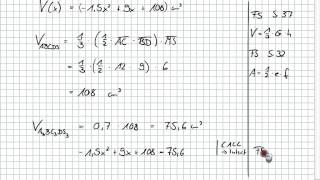 V(x) = (-1,5x² + 9x + 108) cm³
V_ABCDS = 1/3 · (1/2 · AC · BD) · MS
= 1/3 · (1/2 · 12 · 9) · 6
= 108 cm³
V_AB₃C₃DS₃ = 0,7 · 108 = 75,6 cm³
-1,5x² + 9x + 108 = 75,6
FS S 37
V = 1/3 G · h
FS S 32
A = 1/2 · e · f
CALC
FS